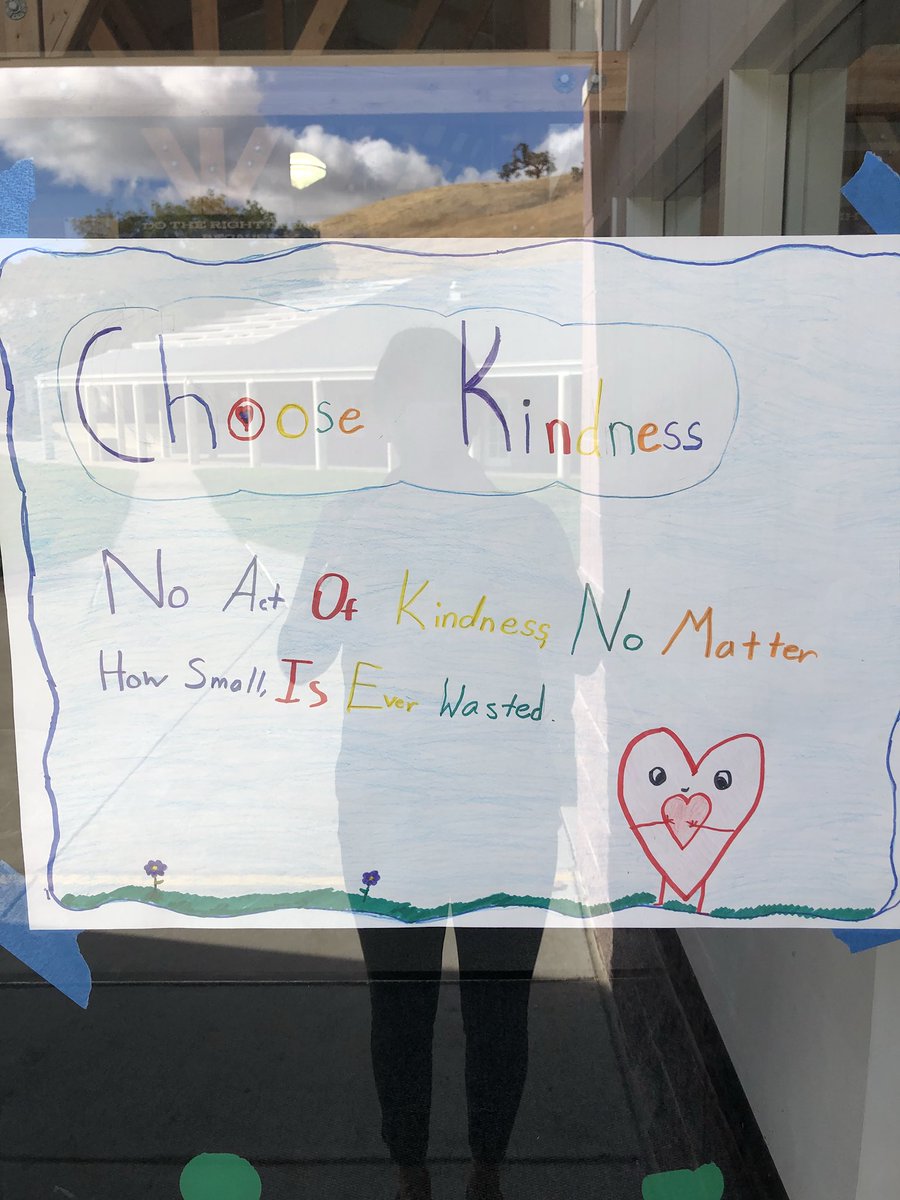 DO THE RIGHT
Choose Kindness
No Act Of Kindness, No Matter
How Small, Is Ever Wasted.